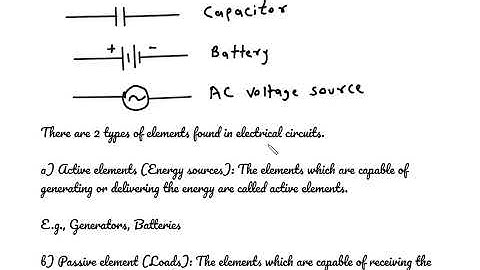 Capacitor
+ -
Battery
AC voltage source
There are 2 types of elements found in electrical circuits.
a) Active elements (Energy sources): The elements which are capable of
generating or delivering the energy are called active elements.
E.g., Generators, Batteries
b) Passive element (Loads): The elements which are capable of receiving the